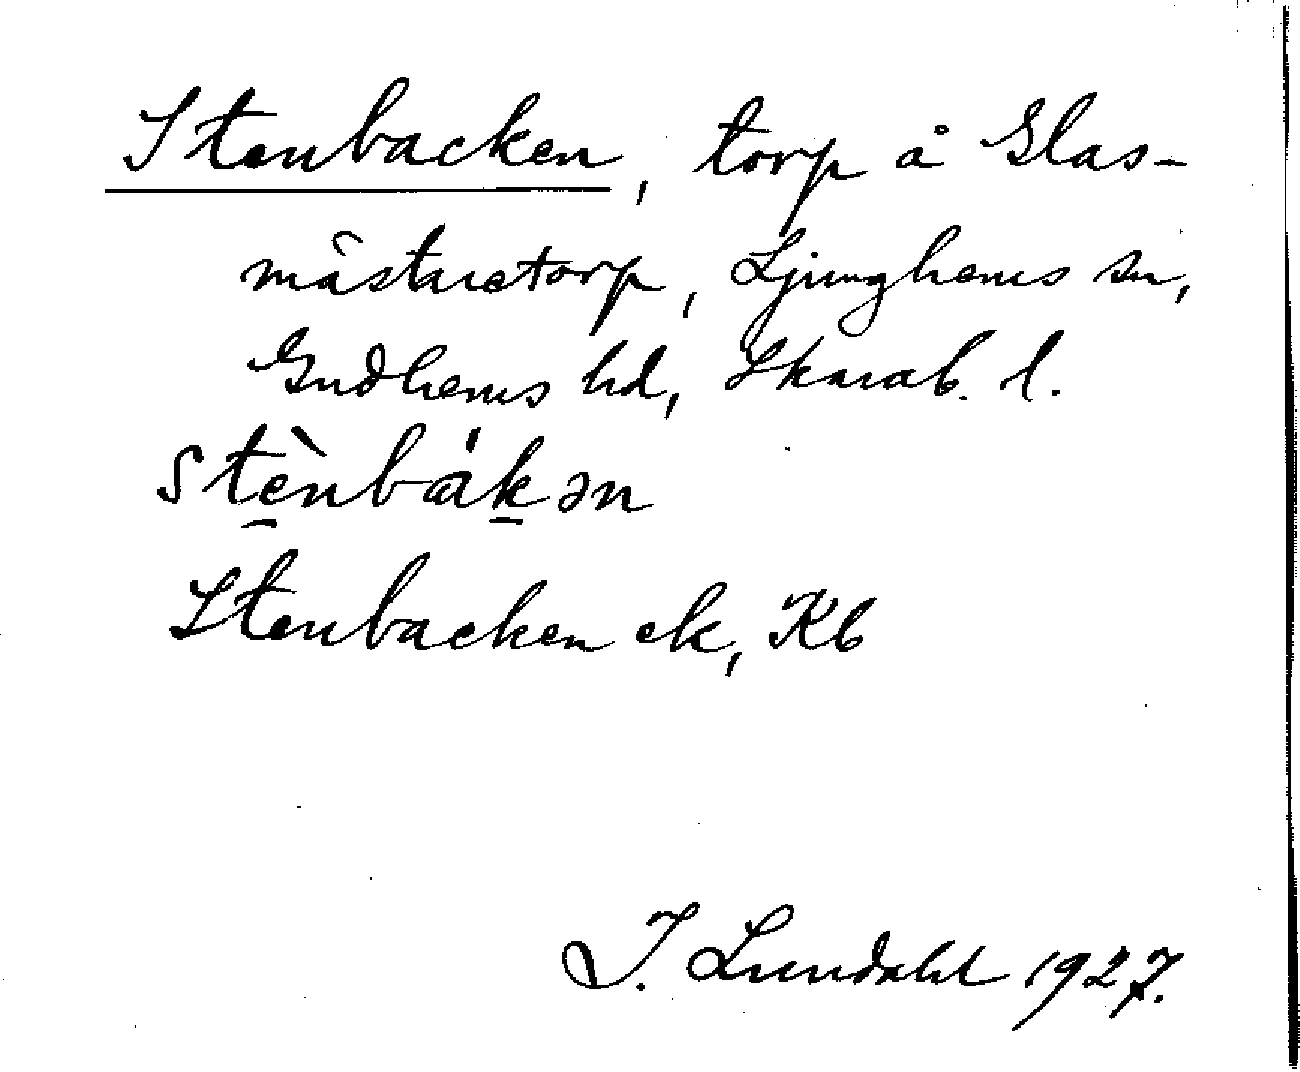 Stenbacken, torp å Glas-
mästaretorp, Ljunghems sn,
Gudhems hd, Skarab. l.
stè̠nbák̠ən
Stenbacken ek, Kb
I. Lundahl 1927.